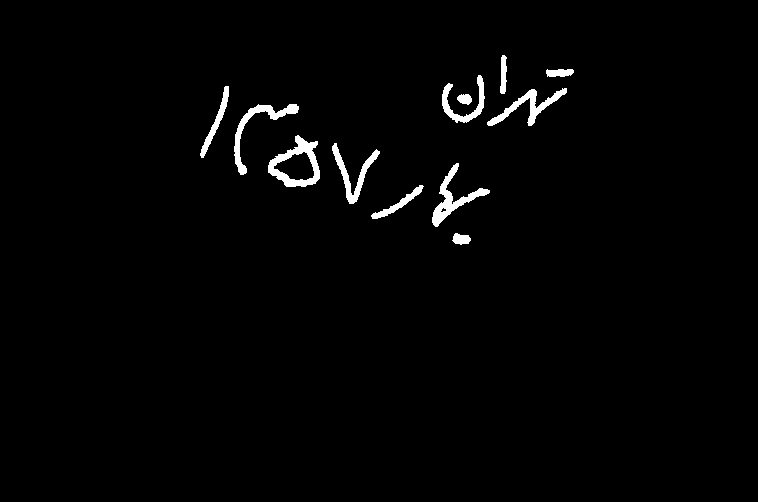 تهران
بهار ۱۳۵۷